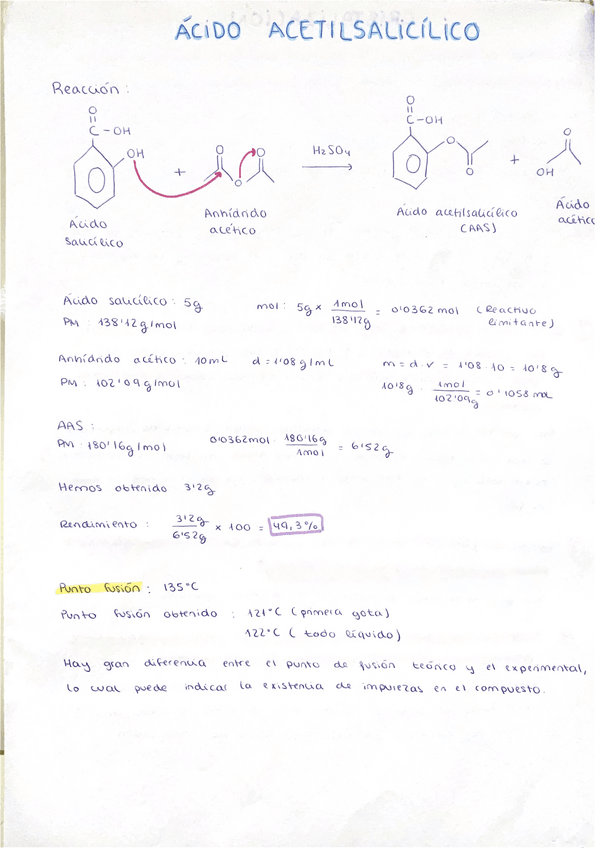 ÁCIDO ACETILSALICÍLICO
Reacción:
O
C-OH
OH
+
O O
O
H₂SO₄
O
C-OH
O
O
+
O
OH
Ácido
salicílico
Anhídrido
acético
Ácido acetilsalicílico
(AAS)
Ácido
acético
Ácido salicílico: 5g
mol: 5g × 1mol / 138'12g = 0'0362 mol (Reactivo limitante)
PM: 138'12g/mol
Anhídrido acético: 10mL d = 1'08 g/mL m = d·v = 1'08·10 = 10'8 g
PM: 102'09g/mol
10'8g · 1mol / 102'09g = 0'1058 mol
AAS:
PM: 180'16g/mol
0'0362mol · 180'16g / 1mol = 6'52g
Hemos obtenido 3'2g
Rendimiento: 3'2g / 6'52g × 100 = 49,3%
Punto fusión: 135°C
Punto fusión obtenido: 121°C (primera gota)
122°C (todo líquido)
Hay gran diferencia entre el punto de fusión teórico y el experimental,
lo cual puede indicar la existencia de impurezas en el compuesto.